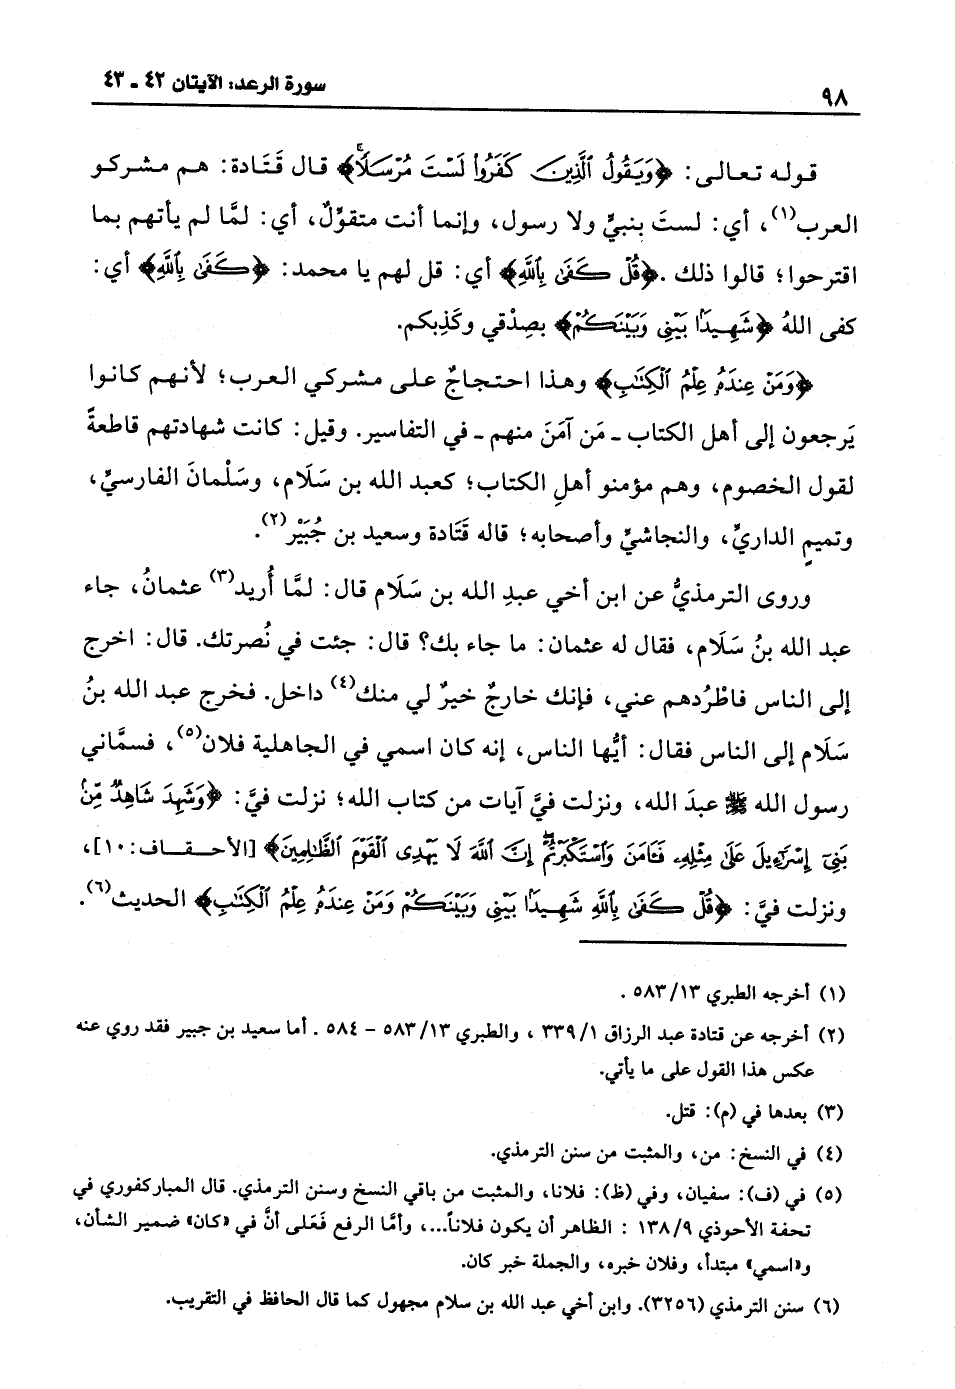 ٩٨
سورة الرعد: الآيتان ٤٢ - ٤٣
قوله تعالى: ﴿وَيَقُولُ ٱلَّذِينَ كَفَرُوا۟ لَسْتَ مُرْسَلًا﴾ قال قَتَادة: هم مشركو
العرب(١)، أي: لستَ بنبيٍّ ولا رسول، وإنما أنت متقوِّلٌ، أي: لمَّا لم يأتهم بما
اقترحوا؛ قالوا ذلك. ﴿قُلْ كَفَىٰ بِٱللَّهِ﴾ أي: قل لهم يا محمد: ﴿كَفَىٰ بِٱللَّهِ﴾ أي:
كفى اللهُ ﴿شَهِيدًۢا بَيْنِى وَبَيْنَكُمْ﴾ بصِدْقي وكَذِبكم.
﴿وَمَنْ عِندَهُۥ عِلْمُ ٱلْكِتَـٰبِ﴾ وهذا احتجاجٌ على مشركي العرب؛ لأنهم كانوا
يَرجعون إلى أهل الكتاب - مَن آمَنَ منهم - في التفاسير. وقيل: كانت شهادتهم قاطعةً
لقول الخصوم، وهم مؤمنو أهلِ الكتاب؛ كعبد الله بن سَلَام، وسَلْمانَ الفارسيِّ،
وتميمٍ الداريِّ، والنجاشيِّ وأصحابه؛ قاله قَتَادة وسعيد بن جُبَيْر(٢).
وروى الترمذيُّ عن ابن أخي عبدِ الله بن سَلَام قال: لمَّا أُريد(٣) عثمانُ، جاء
عبد الله بنُ سَلَام، فقال له عثمان: ما جاء بك؟ قال: جئت في نُصرتك. قال: اخرج
إلى الناس فاطْرُدهم عني، فإنك خارجٌ خيرٌ لي منك(٤) داخل. فخرج عبد الله بنُ
سَلَام إلى الناس فقال: أيُّها الناس، إنه كان اسمي في الجاهلية فلان(٥)، فسمَّاني
رسول الله ﷺ عبدَ الله، ونزلت فيَّ آيات من كتاب الله؛ نزلت فيَّ: ﴿وَشَهِدَ شَاهِدٌ مِّنۢ
بَنِىٓ إِسْرَٰٓءِيلَ عَلَىٰ مِثْلِهِۦ فَـَٔامَنَ وَٱسْتَكْبَرْتُمْ ۖ إِنَّ ٱللَّهَ لَا يَهْدِى ٱلْقَوْمَ ٱلظَّـٰلِمِينَ﴾ [الأحقاف: ١٠]،
ونزلت فيَّ: ﴿قُلْ كَفَىٰ بِٱللَّهِ شَهِيدًۢا بَيْنِى وَبَيْنَكُمْ وَمَنْ عِندَهُۥ عِلْمُ ٱلْكِتَـٰبِ﴾ الحديث(٦).
(١) أخرجه الطبري ١٣/ ٥٨٣ .
(٢) أخرجه عن قتادة عبد الرزاق ١/ ٣٣٩ ، والطبري ١٣/ ٥٨٣ - ٥٨٤ . أما سعيد بن جبير فقد روي عنه
عكس هذا القول على ما يأتي.
(٣) بعدها في (م): قتل.
(٤) في النسخ: من، والمثبت من سنن الترمذي.
(٥) في (ف): سفيان، وفي (ظ): فلانا، والمثبت من باقي النسخ وسنن الترمذي. قال المباركفوري في
تحفة الأحوذي ٩/ ١٣٨ : الظاهر أن يكون فلاناً...، وأمَّا الرفع فَعَلى أنَّ في «كان» ضمير الشأن،
و«اسمي» مبتدأ، وفلان خبره، والجملة خبر كان.
(٦) سنن الترمذي (٣٢٥٦). وابن أخي عبد الله بن سلام مجهول كما قال الحافظ في التقريب.